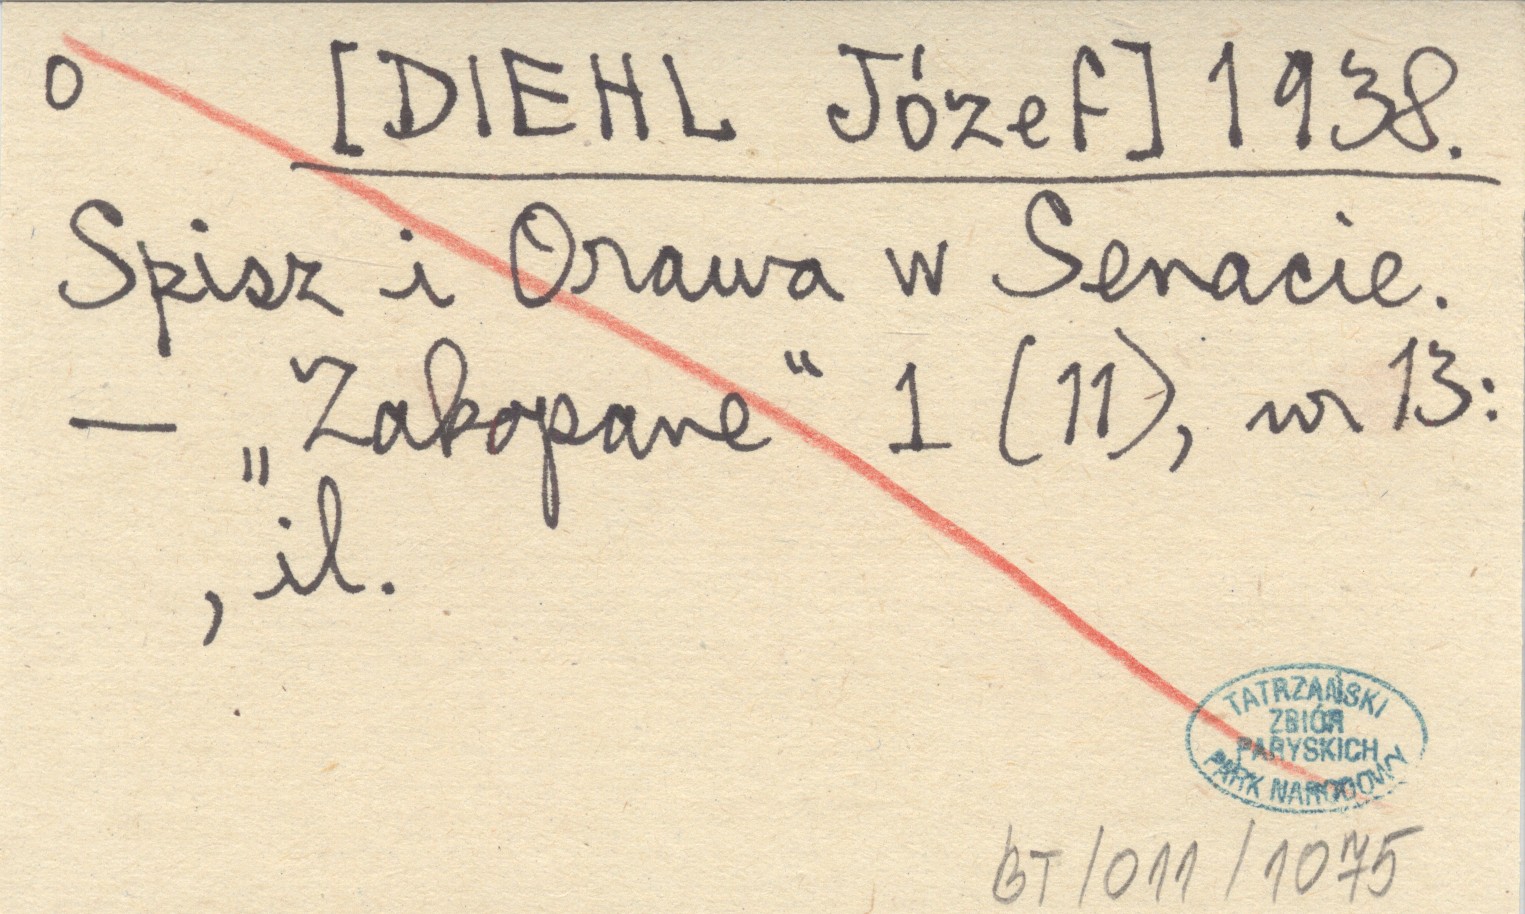 O [DIEHL Józef] 1938.
Spisz i Orawa w Senacie.
— „Zakopane“ 1 (11), nr 13:
, il.
TATRZAŃSKI
ZBIÓR
PARYSKICH
PARK NARODOWY
BT/011/1075